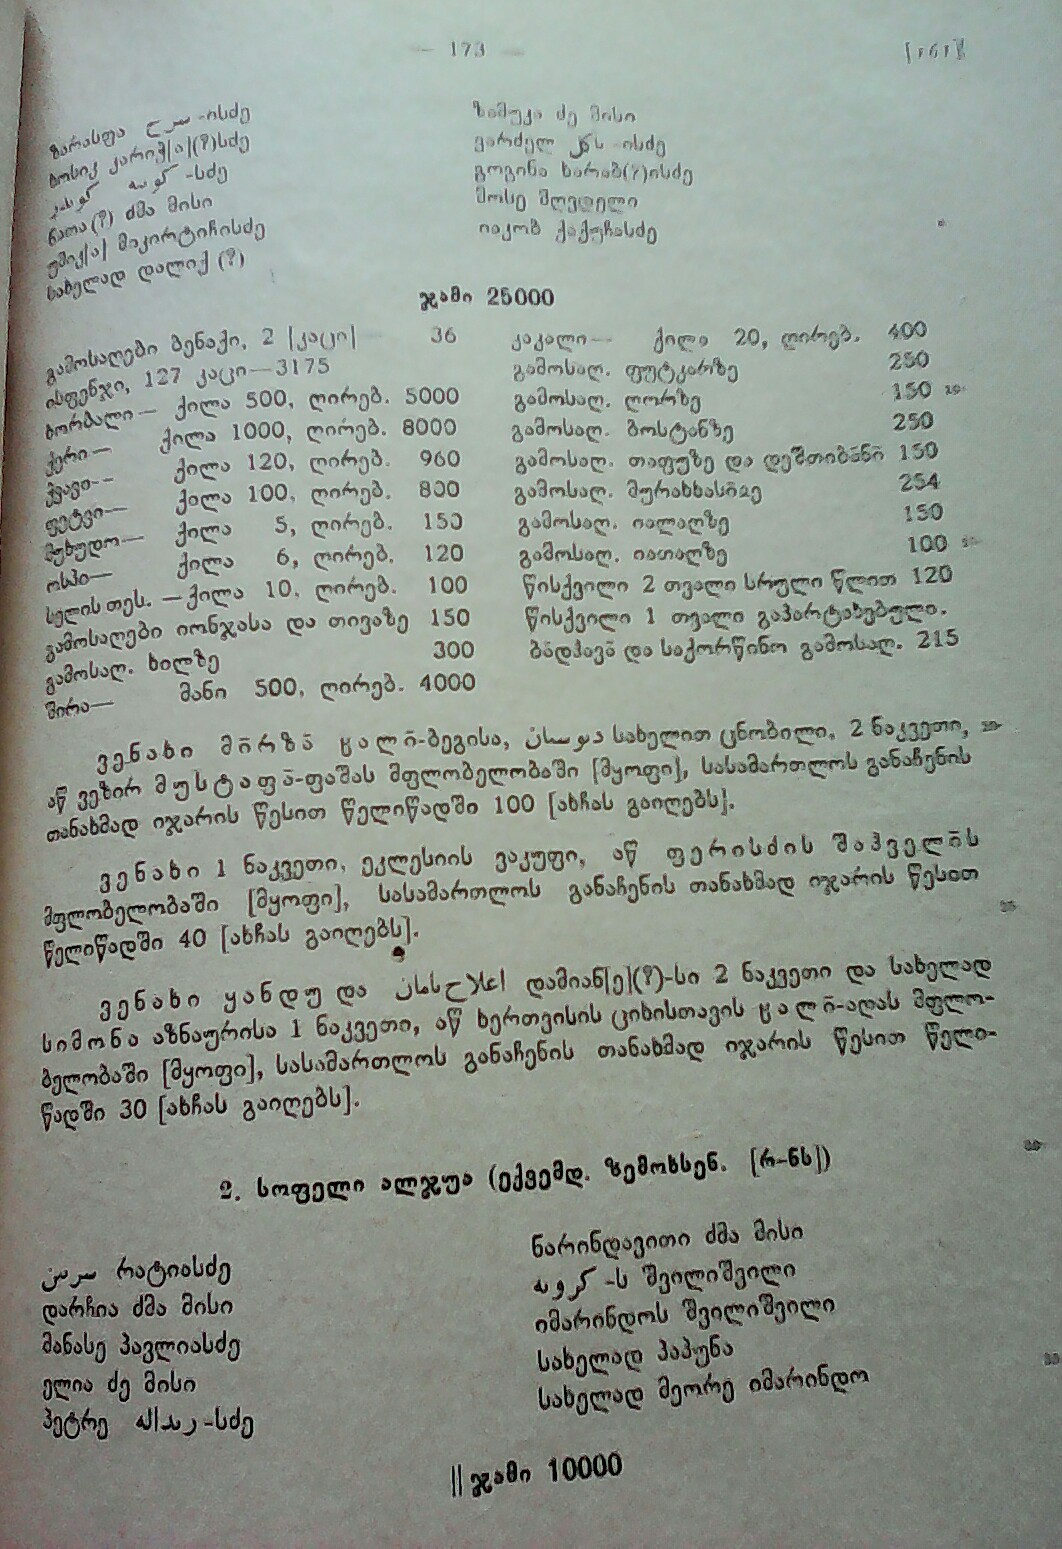 — 173 —
ზარასფა -ისძე
ნათა(?) ძმა მისი
უმიკ[ა] მიკირტიჩისძე
სახელად დალიქ (?)
ზამუკა ძე მისი
ვარძელ -ისძე
გოგინა ხარაბ(?)ისძე
მოსე მღვდელი
იაკობ ქაქუჩასძე
ჯამი 25000
გამოსაღები ბენაქი, 2 [კაცი]— 36
ისფენჯი, 127 კაცი—3175
ხორბალი— ქილა 500, ღირებ. 5000
ქერი— ქილა 1000, ღირებ. 8000
ჭვავი— ქილა 120, ღირებ. 960
ფეტვი— ქილა 100, ღირებ. 800
მუხუდო— ქილა 5, ღირებ. 150
ოსპი— ქილა 6, ღირებ. 120
სელის თეს. — ქილა 10, ღირებ. 100
გამოსაღები იონჯასა და თივაზე 150
გამოსაღ. ხილზე 300
შირა— მანი 500, ღირებ. 4000
კაკალი— ქილა 20, ღირებ. 400
გამოსაღ. ფუტკარზე 250
გამოსაღ. ღორზე 150
გამოსაღ. ბოსტანზე 250
გამოსაღ. თაფუზე და დეშთიბანი 150
გამოსაღ. 254
გამოსაღ. იალაღზე 150
გამოსაღ. იათაღზე 100
წისქვილი 2 თვალი სრული წლით 120
წისქვილი 1 თვალი გაპარტახებული.
ბადჰავა და საქორწინო გამოსაღ. 215
ვენახი მირზა ყალი-ბეგისა, სახელით ცნობილი, 2 ნაკვეთი,
აწ ვეზირ მუსტაფა-ფაშას მფლობელობაში [მყოფი], სასამართლოს განაჩენის
თანახმად იჯარის წესით წელიწადში 100 [ახჩას გაიღებს].
ვენახი 1 ნაკვეთი, ეკლესიის ვაკუფი, აწ ფერისძის შაჰველის
მფლობელობაში [მყოფი], სასამართლოს განაჩენის თანახმად იჯარის წესით
წელიწადში 40 [ახჩას გაიღებს].
ვენახი ყანდუ და დამიან[ე](?)-სი 2 ნაკვეთი და სახელად
სიმონა აზნაურისა 1 ნაკვეთი, აწ ხერთვისის ციხისთავის ყალი-აღას მფლო-
ბელობაში [მყოფი], სასამართლოს განაჩენის თანახმად იჯარის წესით წელი-
წადში 30 [ახჩას გაიღებს].
2. სოფელი ალჯუა (ექვემდ. ზემოხსენ. [რ-ნს])
რატიასძე
დარჩია ძმა მისი
მანასე პავლიასძე
ელია ძე მისი
პეტრე -სძე
ნარინდავითი ძმა მისი
-ს შვილიშვილი
იმარინდოს შვილიშვილი
სახელად პაპუნა
სახელად მეორე იმარინდო
|| ჯამი 10000